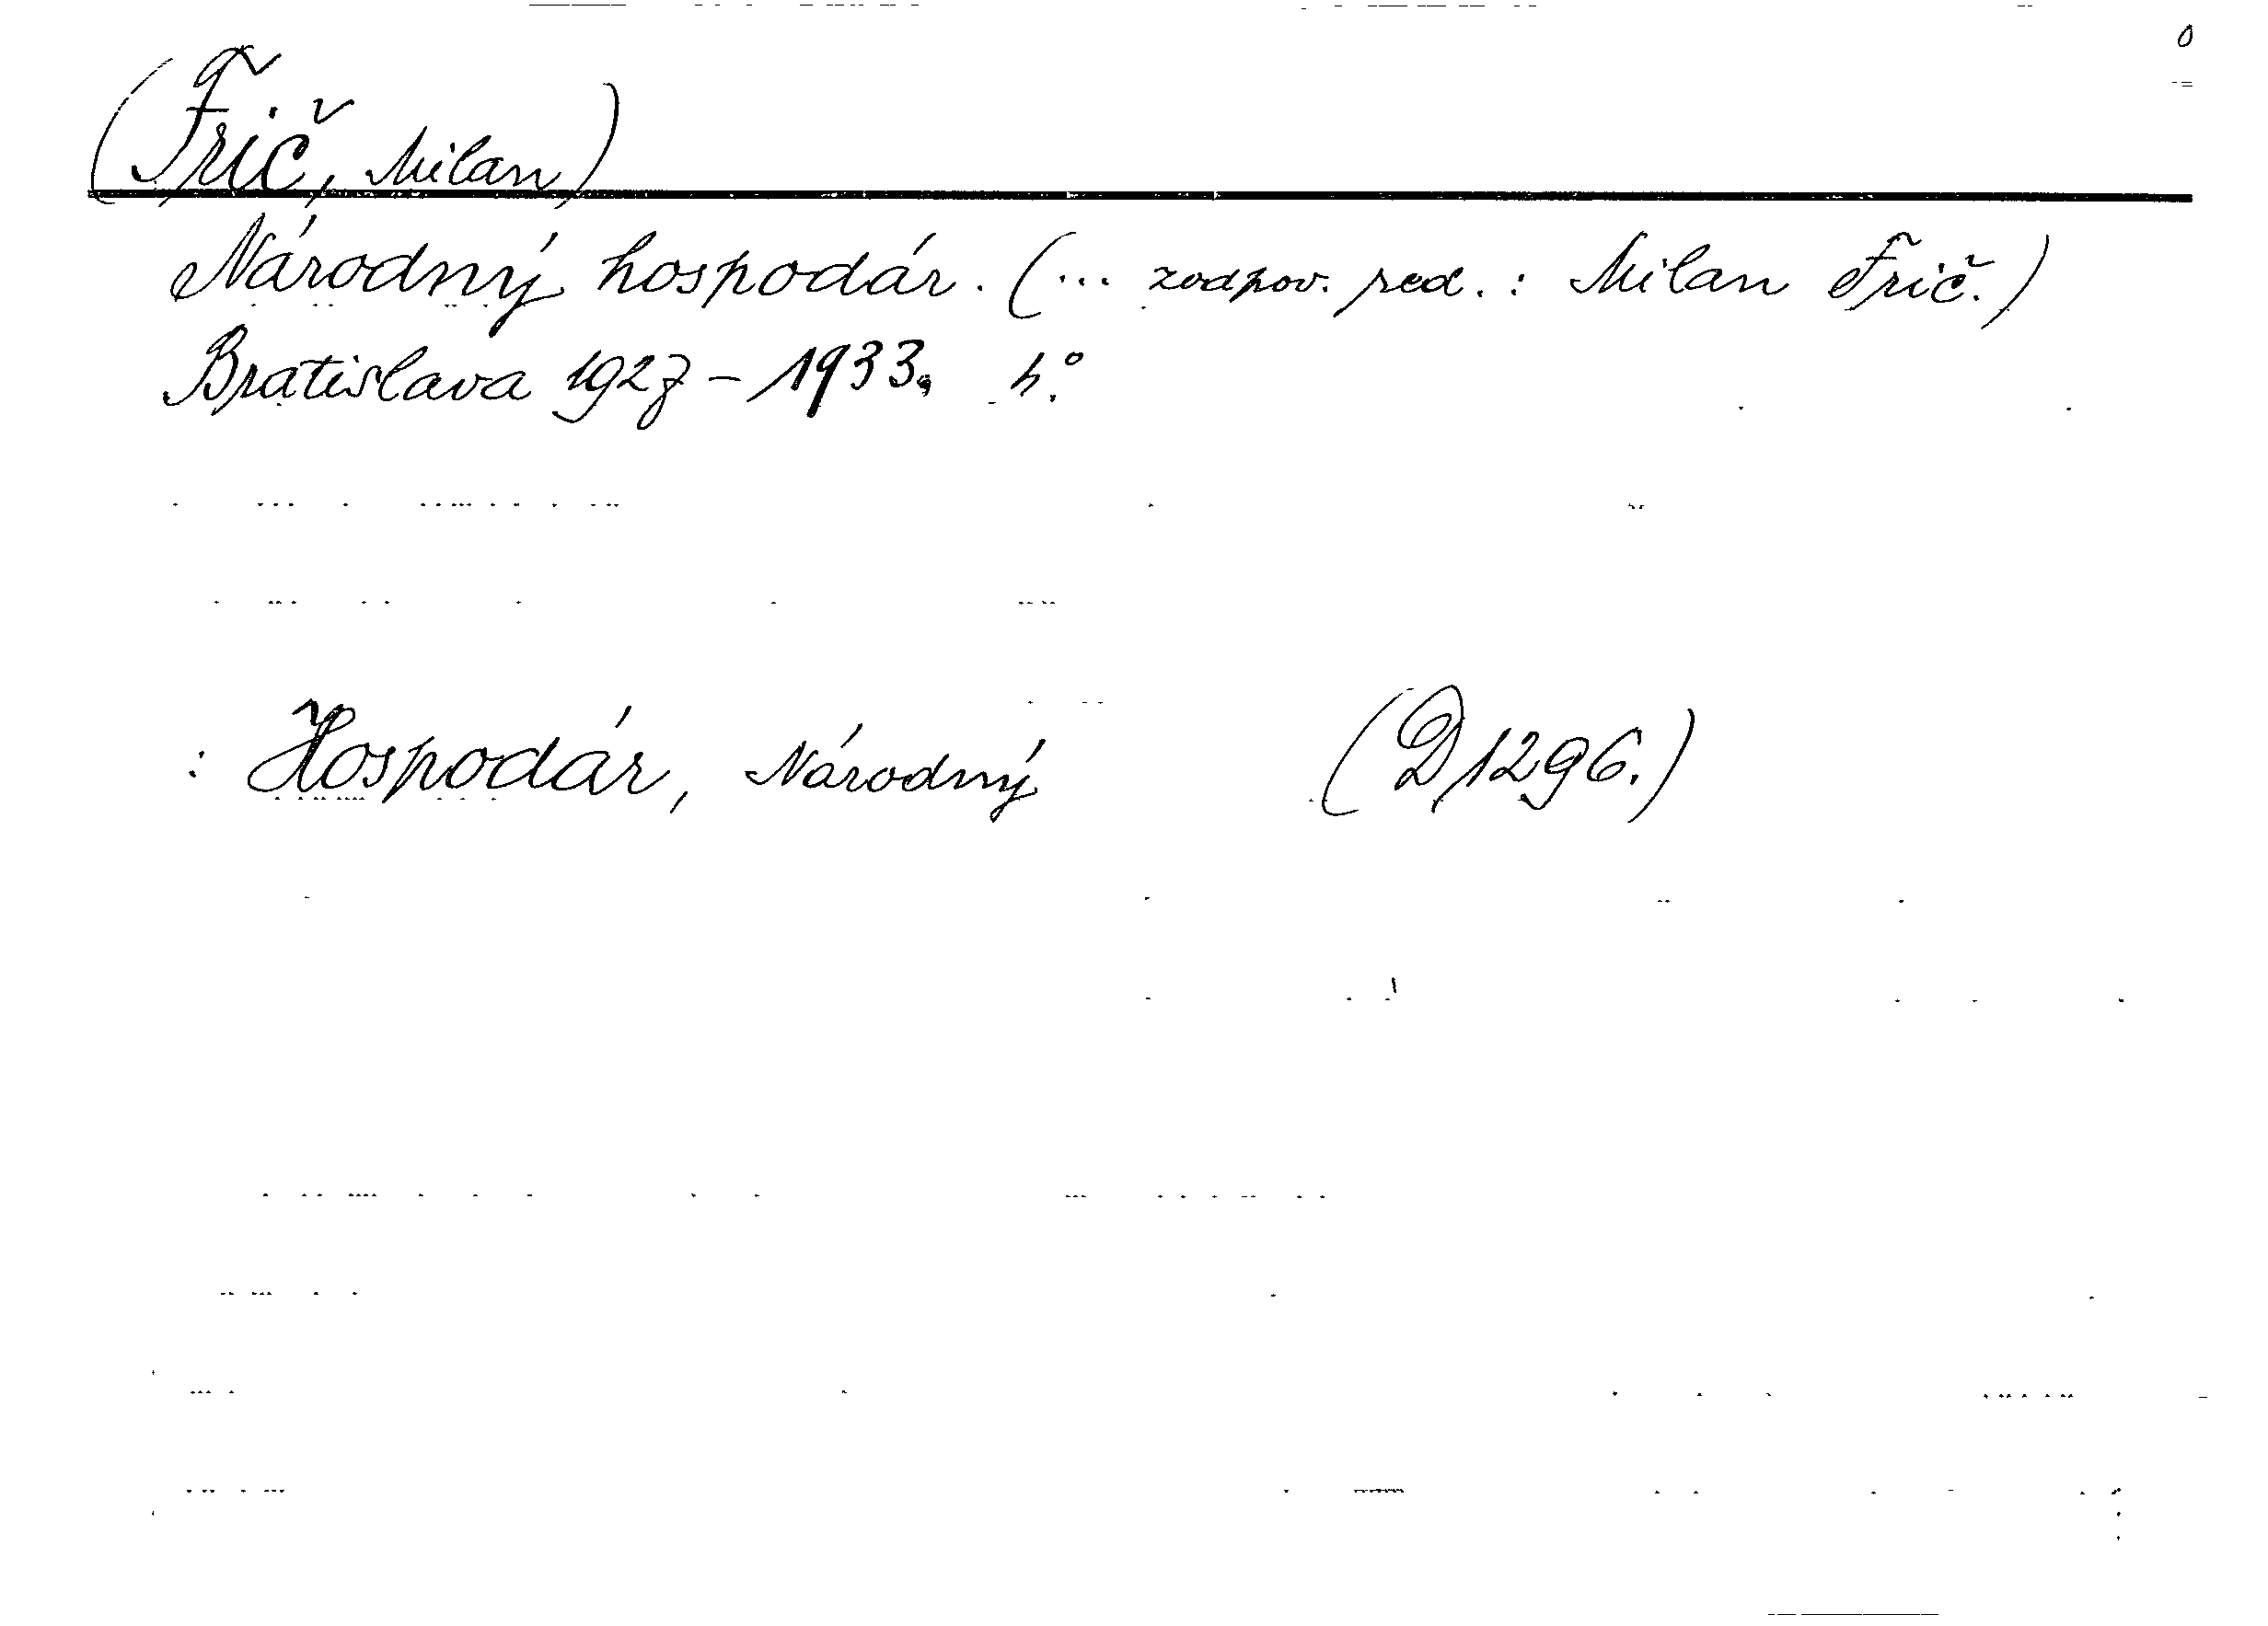 0
(Frič, Milan)
Národný hospodár. (... zodpov. red.: Milan Frič.)
Bratislava 1927-1933. 4.°
: Hospodár, Národný (D1296.)